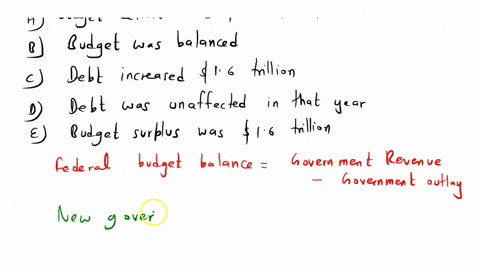 A)
B) Budget was balanced
C) Debt increased $1.6 trillion
D) Debt was unaffected in that year
E) Budget surplus was $1.6 trillion
Federal budget balance = Government Revenue
- Government outlay
New gover